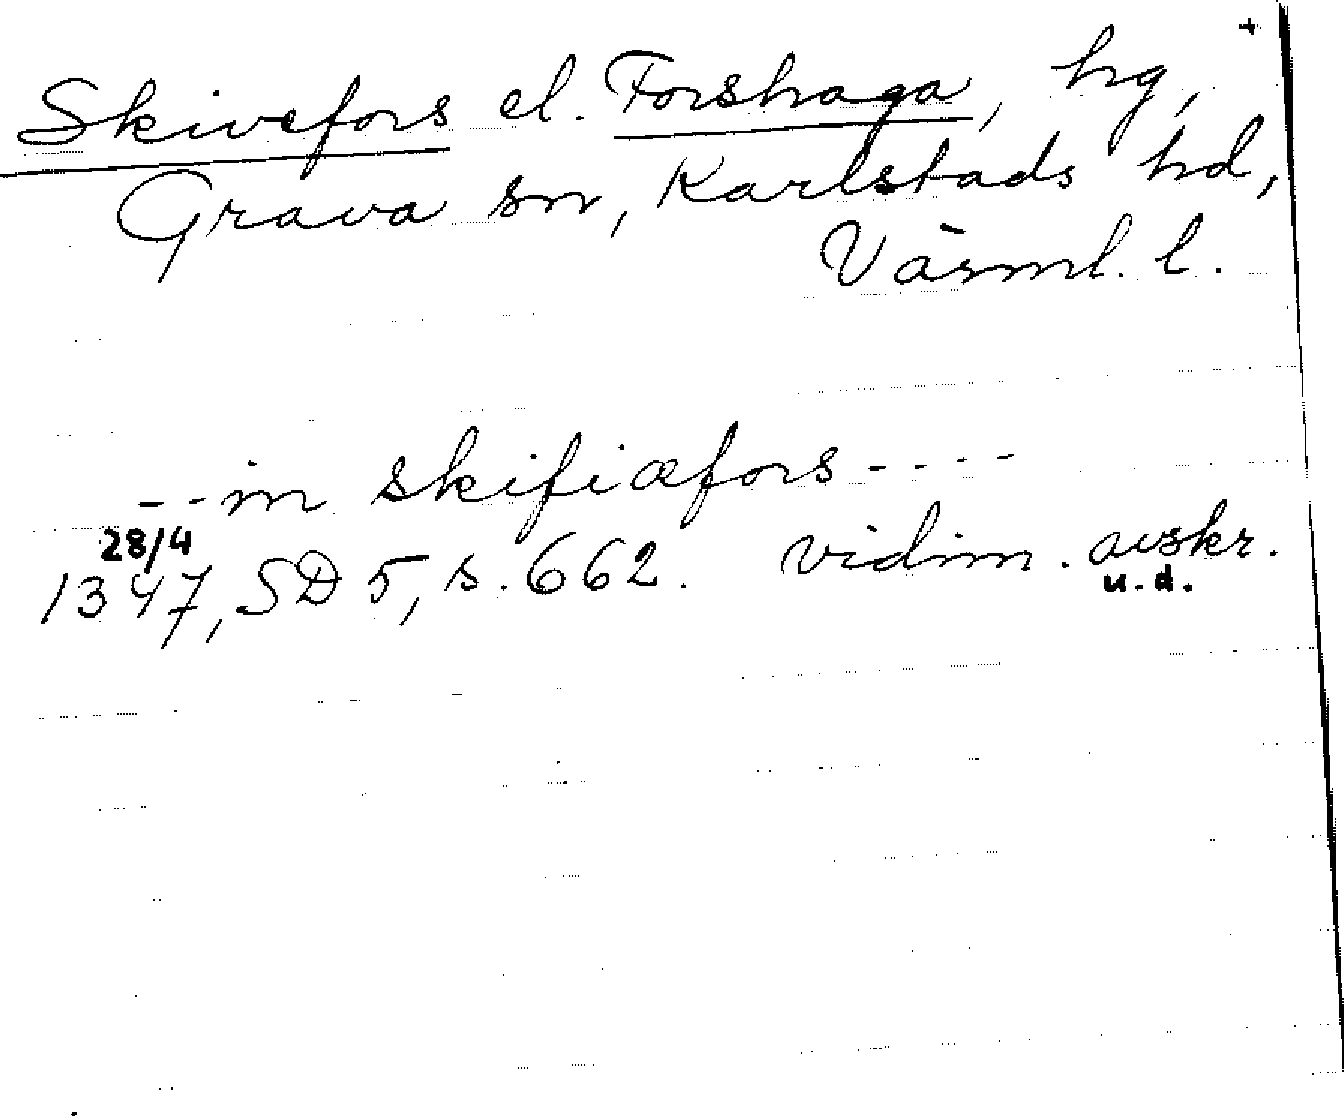 +
Skivefors el. Forshaga, hg,
Grava sn, Karlstads hd,
Värml. l.
--in skifiæfors----
28/4
1347, SD 5, s. 662. vidim. avskr.
u.d.